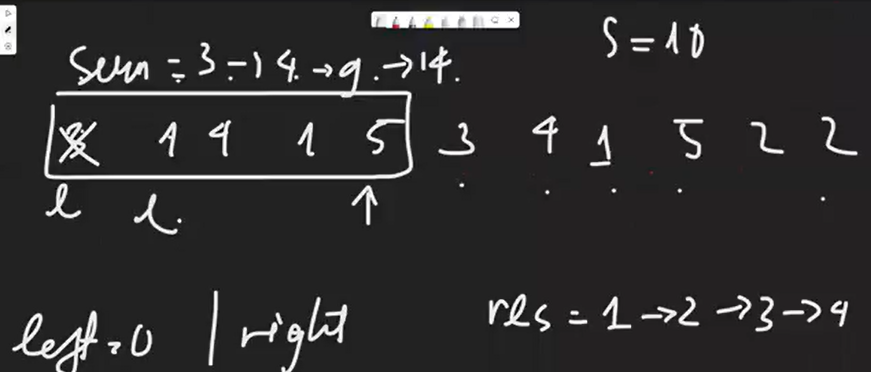 S = 10
Sum = 3 → 14 → 9 → 14
1 4 1 5 3 4 1 5 2 2
l l
left = 0 | right
res = 1 → 2 → 3 → 4